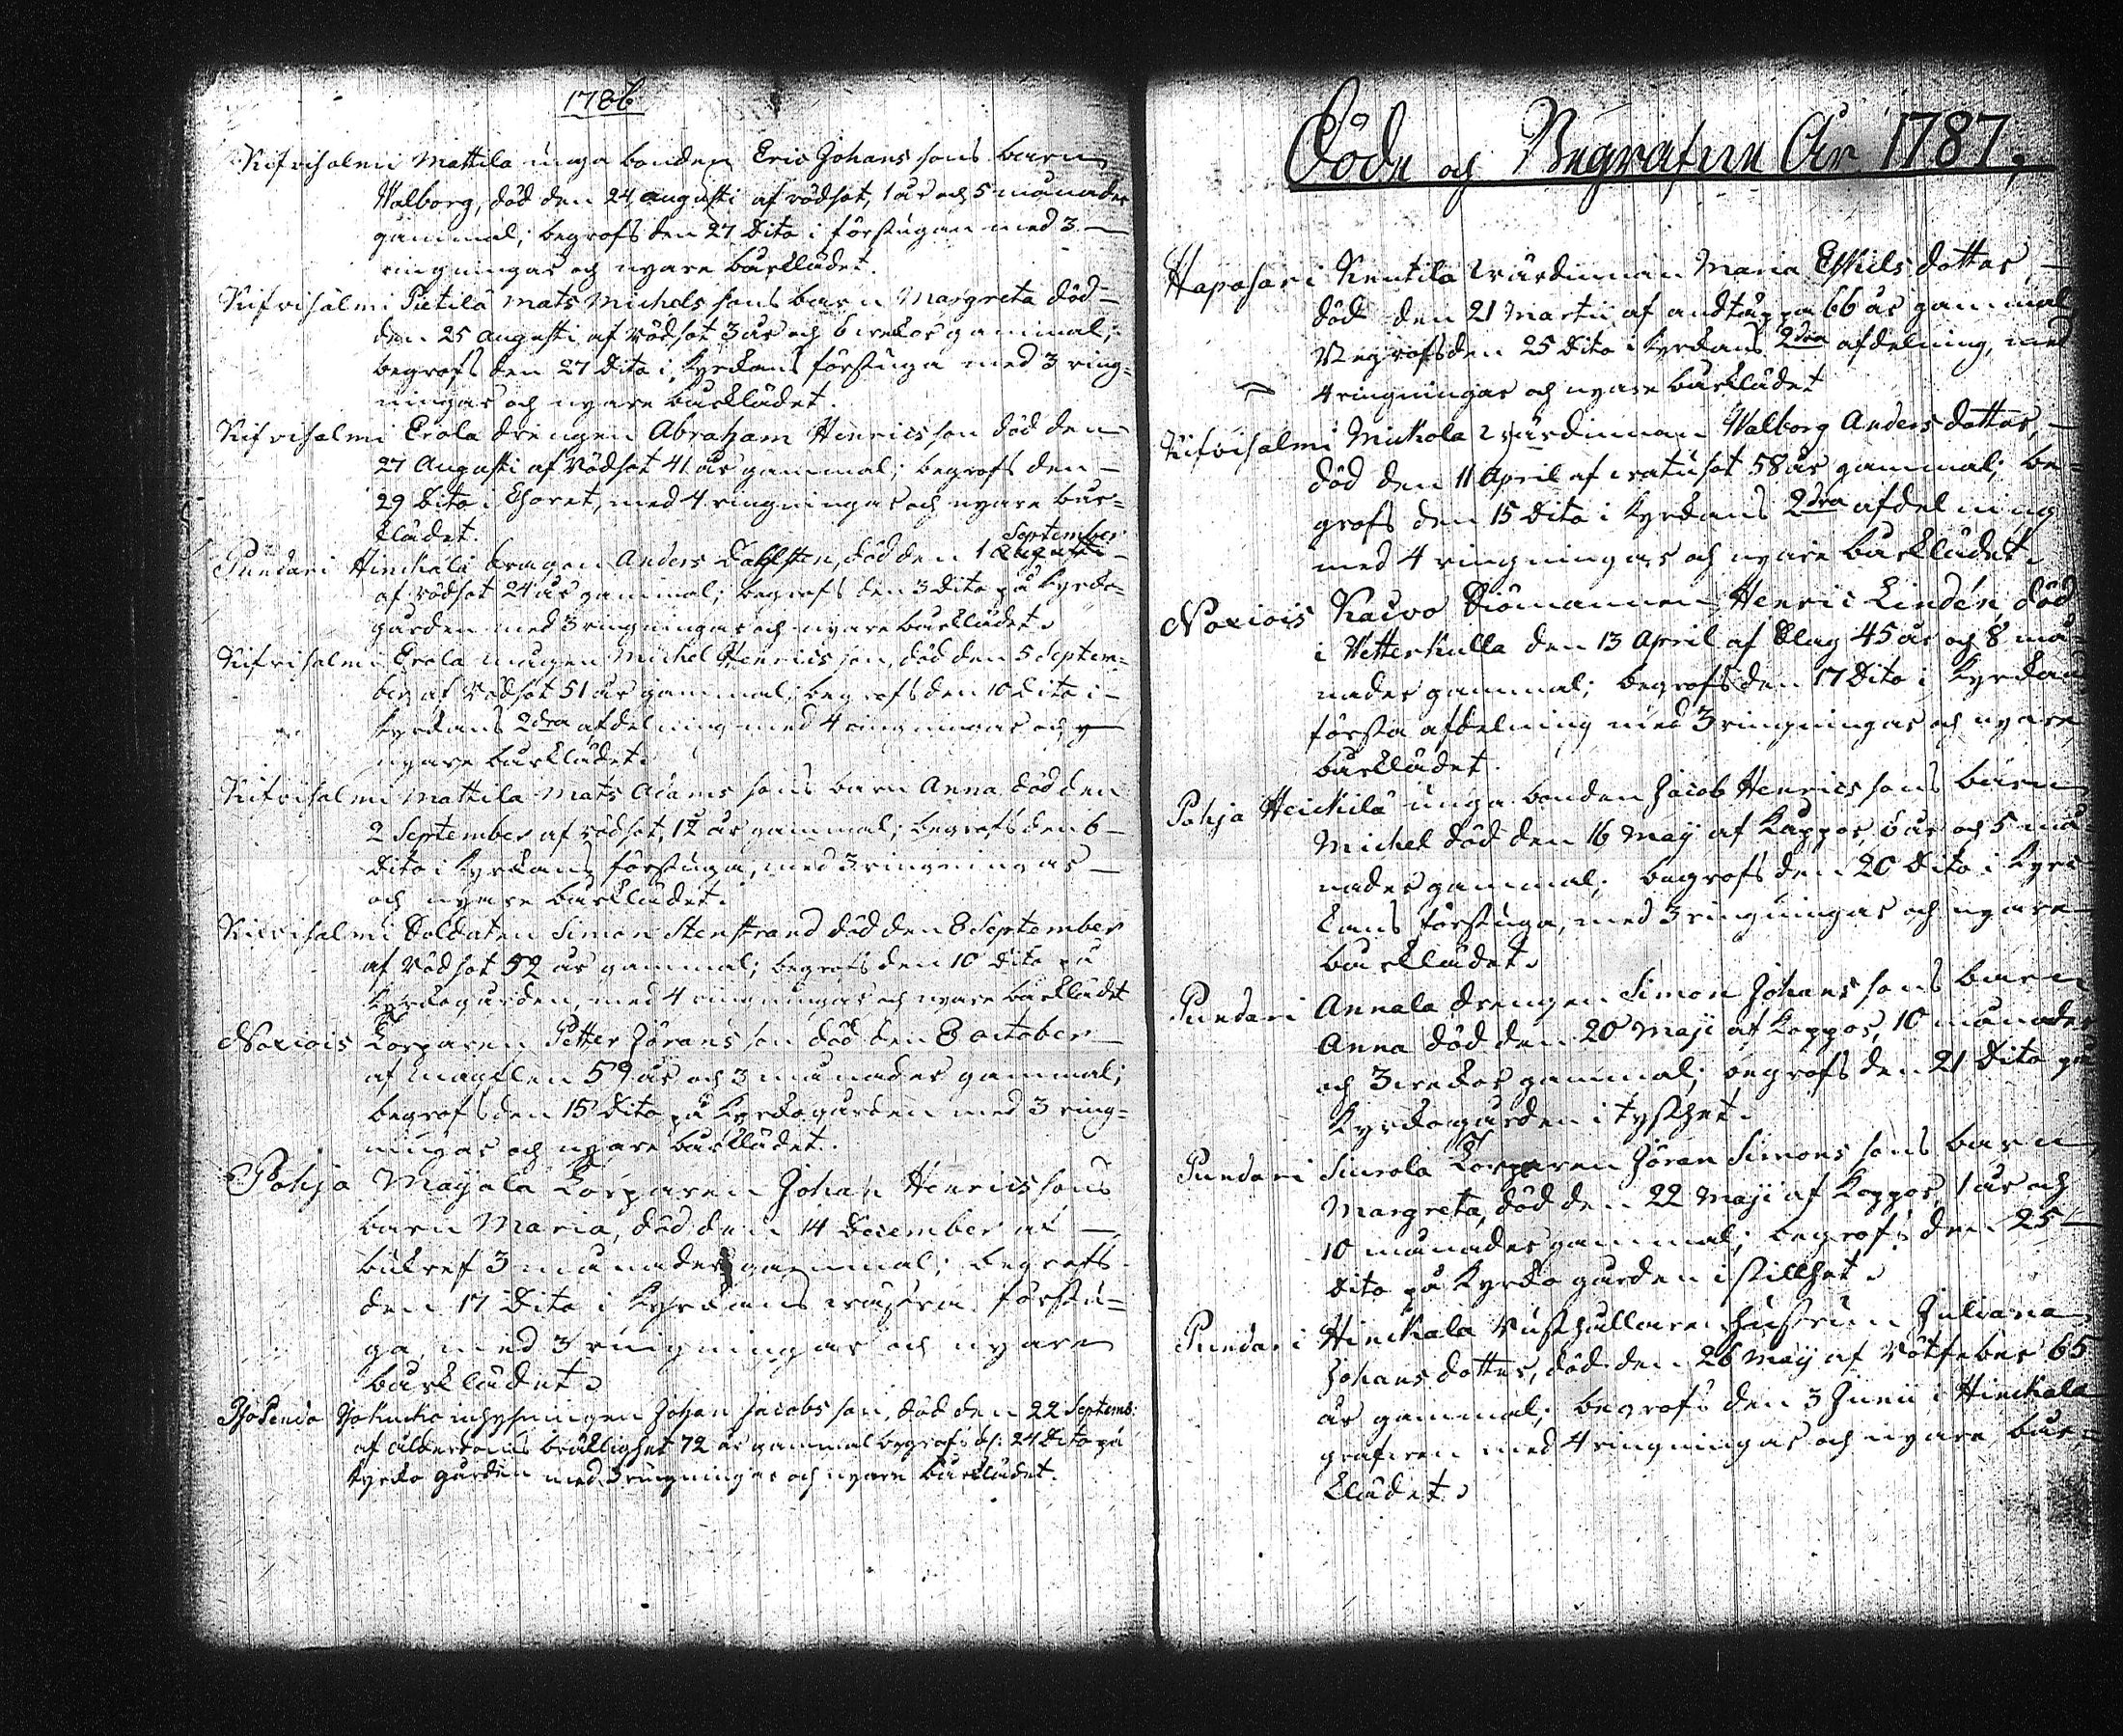 1786
Kifvisalmi Mattila unga bonden Eric Johans sons barn
Walborg, död den 24 augusti af rödsot, 1 år och 5 månader
gammal; begrofs den 27 Dito i förstugan med 3
ringningar och nyare bårklädet.
Kifvisalmi Putila Mats Michels sons barn Margreta död
den 25 augusti af rödsot 3 år och 6 wekor gammal;
begrofs den 27 Dito i Kyrkans förstuga med 3 ring=
ningar och nyare bårklädet.
Kifvisalmi Erola drengen Abraham Henricsson död den
27 Augusti af rödsot 41 år gammal; begrofs den
29 Dito i Choret, med 4 ringningar och nyare bår=
klädet.
September
Pundari Hinckala dragon Anders Dahlsten, död den 1 Augusti
af rödsot 24 år gammal; begrofs den 3 Dito på Kyrko=
gården med 3 ringningar och nyare bårklädet.
Kifvisalmi Erola mågen Michel Henrics son, död den 5 Septem=
ber af rödsot 51 år gammal; begrofs den 10 Dito i
Kyrkans 2dra afdelning med 4 ringningar och
nyare bårklädet.
Kifvisalmi Mattila Mats Adams sons barn Anna död den
2 September af rödsot, 12 år gammal; begrofs den 6
Dito i Kyrkans förstuga, med 3 ringningar
och nyare bårklädet.
Kifvisalmi Soldaten Simon Stenstrand död den 8 September
af rödsot 52 år gammal; begrofs den 10 Dito på
Kyrkogården, med 4 ringningar och nyare bårklädet
Noxiois Torparen Petter Jörans son död den 8 october
af 59 år och 3 månader gammal;
begrofs den 15 Dito på Kyrkogården med 3 ring=
ningar och nyare bårklädet.
Pohja Mayala Torparen Johan Henrics sons
barn Maria, död den 14 December af
bukref 3 månader gammal; begrofs
den 17 Dito i Kyrkans förstu=
ga, med 3 ringningar och nyare
bårklädet.
inhysningen Johan Jacobs son, död den 22 Septemb:
af ålderdoms bräcklighet 72 år gammal begrofs d: 24 Dito på
Kyrko gården med 3 ringningar och nyare bårklädet.
Döde och Begrafne År 1787.
Haposari Kentila wärdinnan Maria Eskils dotter,
död den 21 Martii af andtäppa 66 år gammal
Begrofs den 25 Dito i Kyrkans 2dra afdelning, med
4 ringningar och nyare bårklädet
Kifvisalmi Mickola wärdinnan Walborg Anders dotter,
död den 11 April af watusot 58 år gammal; be=
grofs den 15 Dito i Kyrkans 2dra afdelning
med 4 ringningar och nyare bårklädet.
Noxiois Raivo Siömannen Henric Lindén död
i Vetterkulla den 13 April af Slag 45 år och 8 må=
nader gammal; begrofs den 17 Dito i Kyrkans
första afdelning med 3 ringningar och nyare
bårklädet.
Pohja Heickilä unga bonden Jacob Henrics sons barn
Michel död den 16 Maij af Kappor, 6 år och 5 må=
nader gammal; begrofs den 20 Dito i Kyr=
kans förstuga, med 3 ringningar och nyare
bårklädet.
Pundari Annala drengen Simon Johans sons barn
Anna död den 20 Maji af Koppor, 10 månader
och 3 wekor gammal; begrofs den 21 Dito på
Kyrkogården i tysthet.
Pundari Siurola Torparen Jöran Simons sons barn
Margreta, död den 22 Maji af Koppor, 1 år och
10 månader gammal; begrofs den 25
Dito på Kyrko gården i stillhet.
Pundari Hinckala Rusthållaren hustrun Juliana
Johans dotter, död den 26 Maij af Rötfeber 65
år gammal; begrofs den 3 Junii i Hinckala
grafven med 4 ringningar och nyare bår=
klädet.